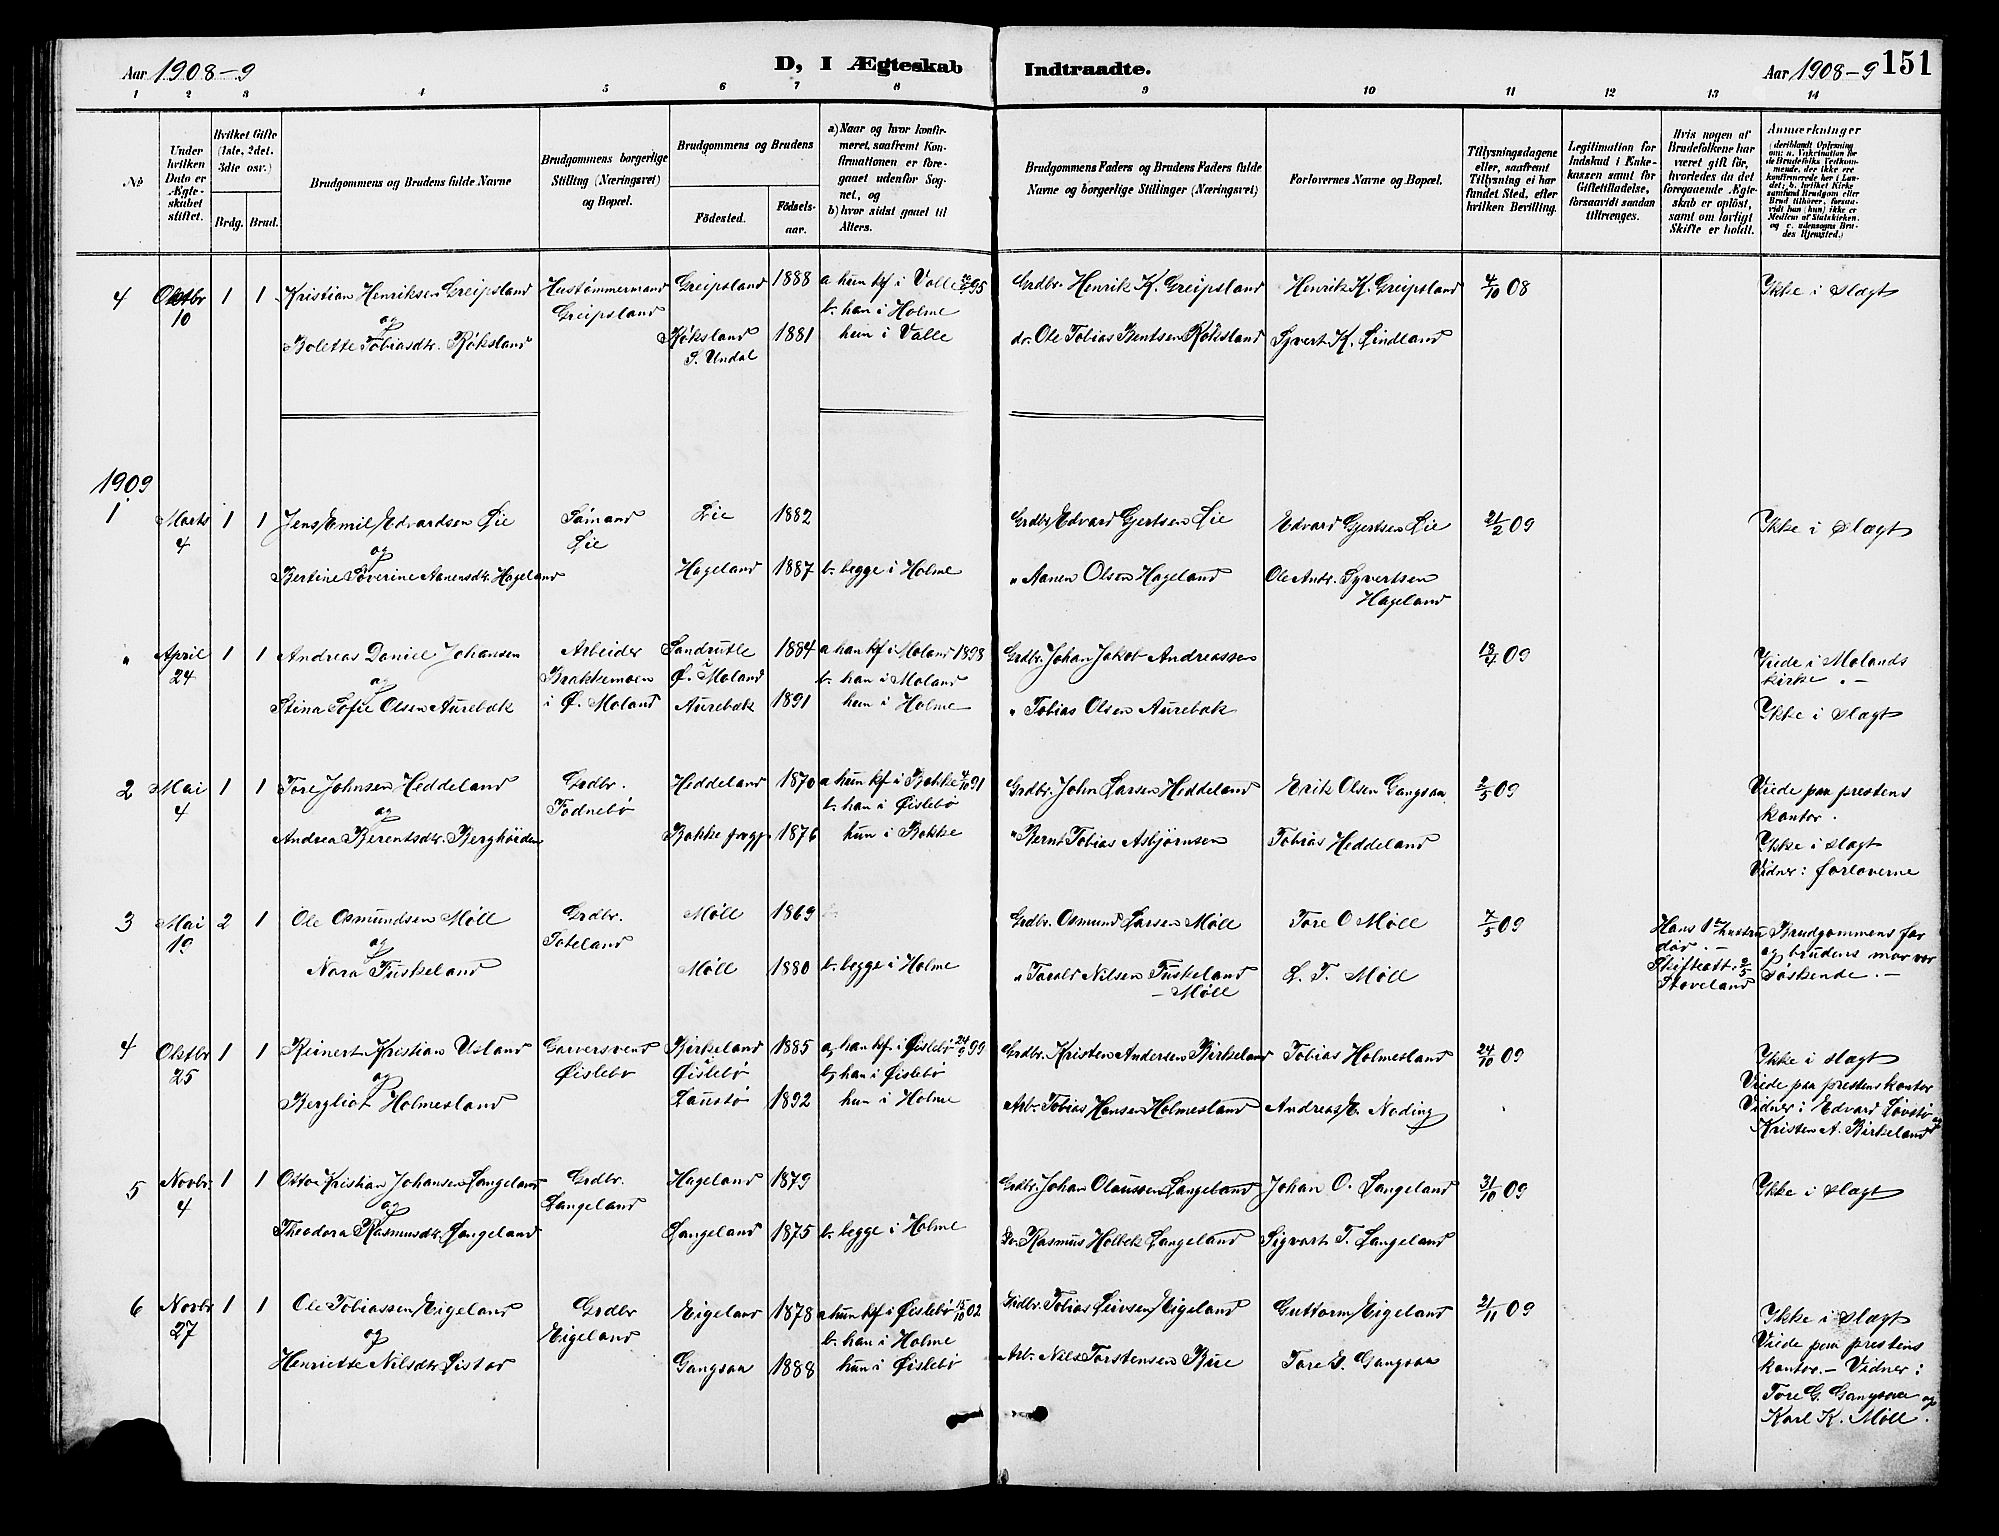 Aar 1908-9
D, I Ægteskab
Indtraadte.
Aar 1908-9 151
1 2 3 4 5 6 7 8 9 10 11 12 13 14
No
Under hvilken Dato er Ægteskabet stiftet.
Hvilket Gifte (1ste, 2det, 3die osv.)
Brdg. Brud.
Brudgommens og Brudens fulde Navne
Brudgommens borgerlige Stilling (Næringsvei) og Bopæl.
Brudgommens og Brudens
Fødested.
Fødselsaar.
a) Naar og hvor konfirmeret, saafremt Konfirmationen er foregaaet udenfor Sognet, og
b) hvor sidst gaaet til Alters.
Brudgommens Faders og Brudens Faders fulde Navne og borgerlige Stillinger (Næringsvei)
Forlovernes Navne og Bopæl.
Tillysningsdagene eller, saafremt Tillysning ei har fundet Sted, efter hvilken Bevilling.
Legitimation for Indskud i Enkekassen samt for Giftetilladelse, forsaavidt saadan tiltrænges.
Hvis nogen af Brudefolkene har været gift før, hvorledes da det foregaaende Ægteskab er opløst, samt om lovligt Skifte er holdt.
Anmerkninger
4 Oktbr 10 1 1 Kristian Henriksen Greipsland Hustømmermand Greipsland Greipsland 1888 a hun kf i Valle 95 Grdbr. Henrik K. Greipsland Henrik K. Greipsland 4/10 08 Ikke i slægt
og b. han i Holme
Bolette Tobiasdtr. Røksland Røksland S. Undal 1881 hun i Valle do. Ole Tobias Bentsen Røksland Syvert K. Lindland
1909
1 Marts 4 1 1 Jens Emil Edvardsen Øie Sømand Øie Øie 1882 Grdbr Edvard Gjertsen Øie Edvard Gjertsen Øie 21/2 09 Ikke i slægt
og
Bertine Severine Aanensdtr. Hageland Hageland 1887 b. begge i Holme " Aanen Olsen Hageland Ole Andr. Syvertsen Hageland
" April 24 1 1 Andreas Daniel Johansen Arbeider Brakkemoen i Ø. Moland Sandrutle i Ø. Moland 1884 a han kf i Moland 1898 Grdbr. Johan Jakob Andreassen 18/4 09 Viede i Molands kirke.-
og b. han i Moland
Stina Sofie Olsen Aurebæk Aurebæk 1891 hun i Holme " Tobias Olsen Aurebæk Ikke i slægt
2 Mai 4 1 1 Tore Johnsen Heddeland Grdbr. Fodnebø Heddeland 1870 a hun kf i Bakke 4/10 91 Grdbr. John Larsen Heddeland Erik Olsen Gangsaa 2/5 09 Viede paa prestens kontor.
og b. han i Øislebø
Andrea Berentsdtr. Berghøiden Bakke prgj. 1876 hun i Bakke " Bernt Tobias Asbjørnsen Tobias Heddeland Ikke i slægt
Vidner: forloverne
3 Mai 19 2 1 Ole Osmundsen Møll Grdbr. Toteland Møll 1869 Grdbr. Osmund Larsen Møll Tore O Møll 7/5 09 Hans 1ste hustru død.- Skifteatt. 2/5 Stoveland Brudgommens far og brudens mor var søskende.-
og
Nora Fuskeland Møll 1880 b. begge i Holme " Torald Nilsen Fuskeland - Møll L. T. Møll
4 Oktbr 25 1 1 Reinert Kristian Usland Garversvend Øislebø Birkeland Øislebø 1885 a, han kf. i Øislebø 24/9 99 Grdbr. Kristen Andersen Birkeland Tobias Holmesland 24/10 09 Ikke i slægt
og b, han i Øislebø Viede paa prestens kontor
Bergliot Holmesland Laustø 1892 hun i Holme Arb. Tobias Hansen Holmesland Andreas E. Noding Vidner: Edvard Løvstø og Kristen A. Birkeland
5 Novbr. 4 1 1 Ottoe Kristian Johansen Langeland Grdbr. Langeland Hageland 1879 Grdbr. Johan Olaussen Langeland Johan O. Langeland 31/10 09 Ikke i slægt
og
Theodora Rasmusdtr. Langeland Langeland 1875 b. begge i Holme Do. Rasmus Holbek Langeland Sigvart T. Langeland
6 Novbr 27 1 1 Ole Tobiassen Eigeland Grdbr Eigeland Eigeland 1878 a hun kf i Øislebø 15/10 02 Grdbr. Tobias Sivsen Eigeland Guttorm Eigeland 21/11 09 Ikke i slægt
og b. han i Holme Viede paa prestens kontor.- Vidner:
Henriette Nilsdtr Listad Gangsaa 1888 hun i Øislebø Arb. Nils Torstensen Bue Tore G. Gangsaa Tore G. Gangsaa og
Karl K. Møll.